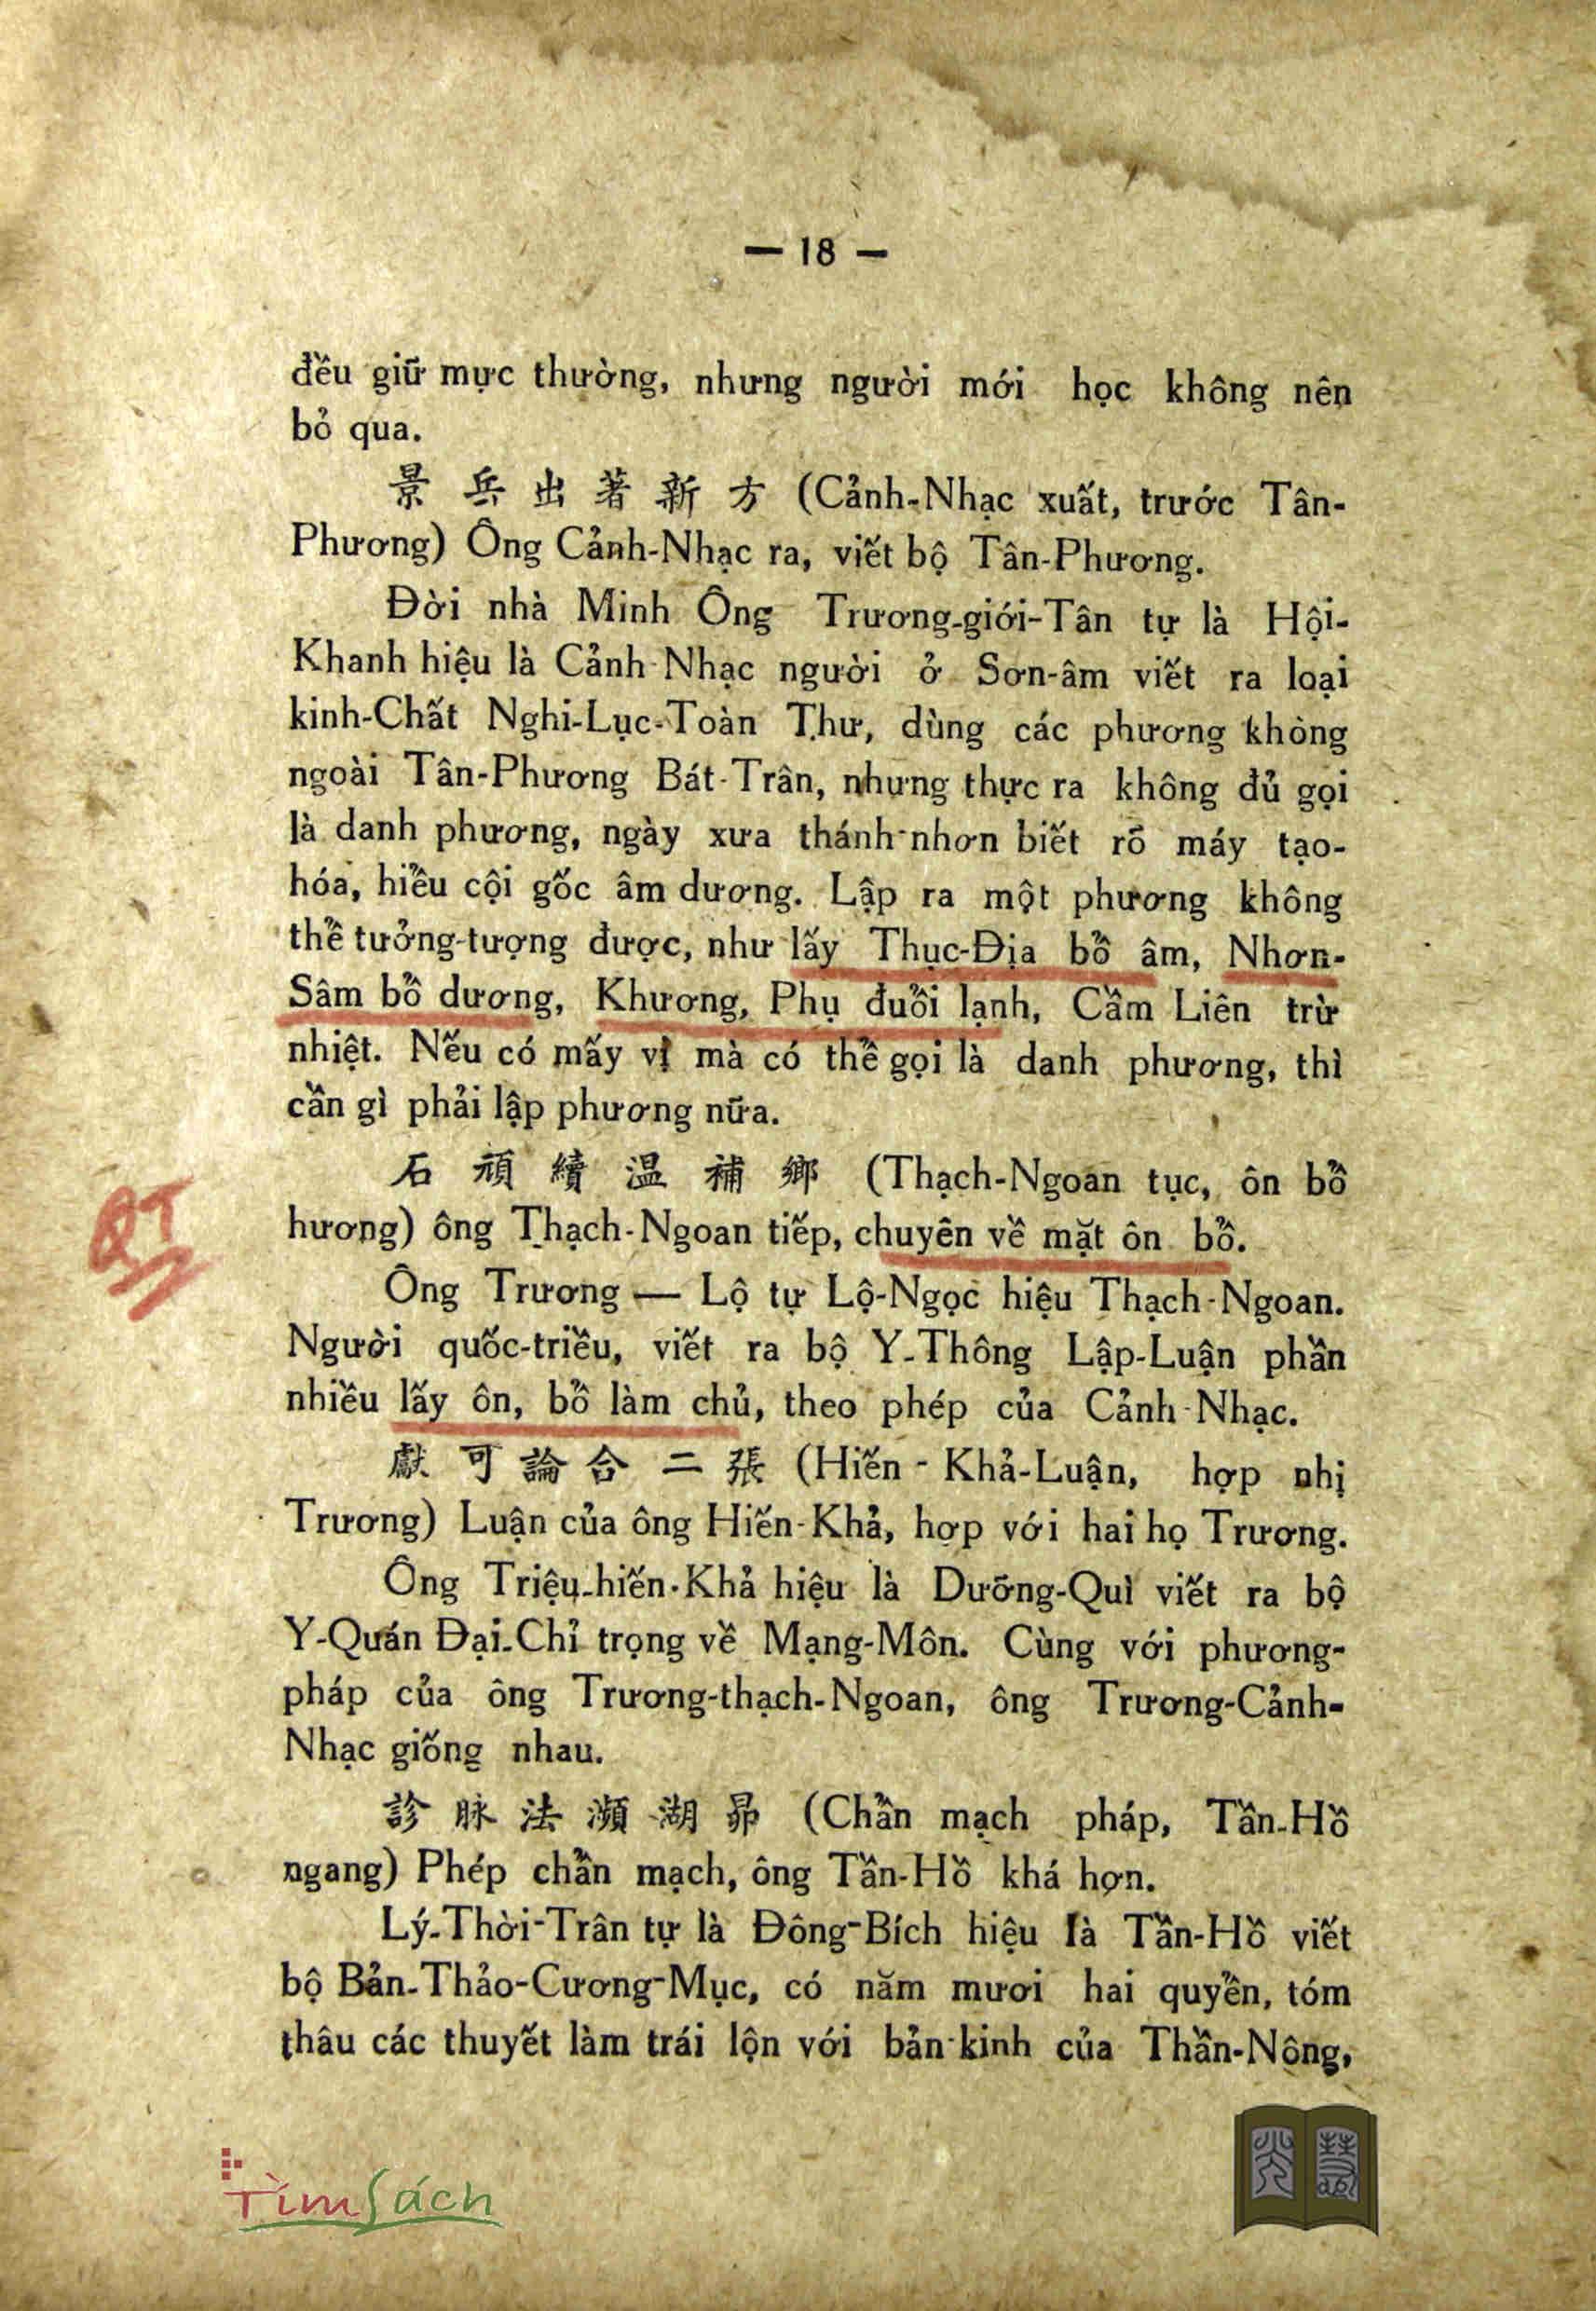 — 18 —
đều giữ mực thường, nhưng người mới học không nên
bỏ qua.
景 兵 出 著 新 方 (Cảnh-Nhạc xuất, trước Tân-
Phương) Ông Cảnh-Nhạc ra, viết bộ Tân-Phương.
Đời nhà Minh Ông Trương-giới-Tân tự là Hội-
Khanh hiệu là Cảnh Nhạc người ở Sơn-âm viết ra loại
kinh-Chất Nghi-Lục-Toàn Thư, dùng các phương không
ngoài Tân-Phương Bát-Trân, nhưng thực ra không đủ gọi
là danh phương, ngày xưa thánh-nhơn biết rõ máy tạo-
hóa, hiểu cội gốc âm dương. Lập ra một phương không
thể tưởng-tượng được, như lấy Thục-Địa bổ âm, Nhơn-
Sâm bổ dương, Khương, Phụ đuổi lạnh, Cầm Liên trừ
nhiệt. Nếu có mấy vị mà có thể gọi là danh phương, thì
cần gì phải lập phương nữa.
石 頑 續 温 補 鄉 (Thạch-Ngoan tục, ôn bổ
hương) ông Thạch-Ngoan tiếp, chuyên về mặt ôn bổ.
Ông Trương — Lộ tự Lộ-Ngọc hiệu Thạch-Ngoan.
Người quốc-triều, viết ra bộ Y-Thông Lập-Luận phần
nhiều lấy ôn, bổ làm chủ, theo phép của Cảnh-Nhạc.
獻 可 論 合 二 張 (Hiến - Khả-Luận, hợp nhị
Trương) Luận của ông Hiến-Khả, hợp với hai họ Trương.
Ông Triệu-hiến-Khả hiệu là Dưỡng-Quì viết ra bộ
Y-Quán Đại-Chỉ trọng về Mạng-Môn. Cùng với phương-
pháp của ông Trương-thạch-Ngoan, ông Trương-Cảnh-
Nhạc giống nhau.
診 脉 法 瀕 湖 昴 (Chẩn mạch pháp, Tần-Hồ
ngang) Phép chẩn mạch, ông Tần-Hồ khá hơn.
Lý-Thời-Trân tự là Đông-Bích hiệu là Tần-Hồ viết
bộ Bản-Thảo-Cương-Mục, có năm mươi hai quyển, tóm
thâu các thuyết làm trái lộn với bản-kinh của Thần-Nông,
TìmSách